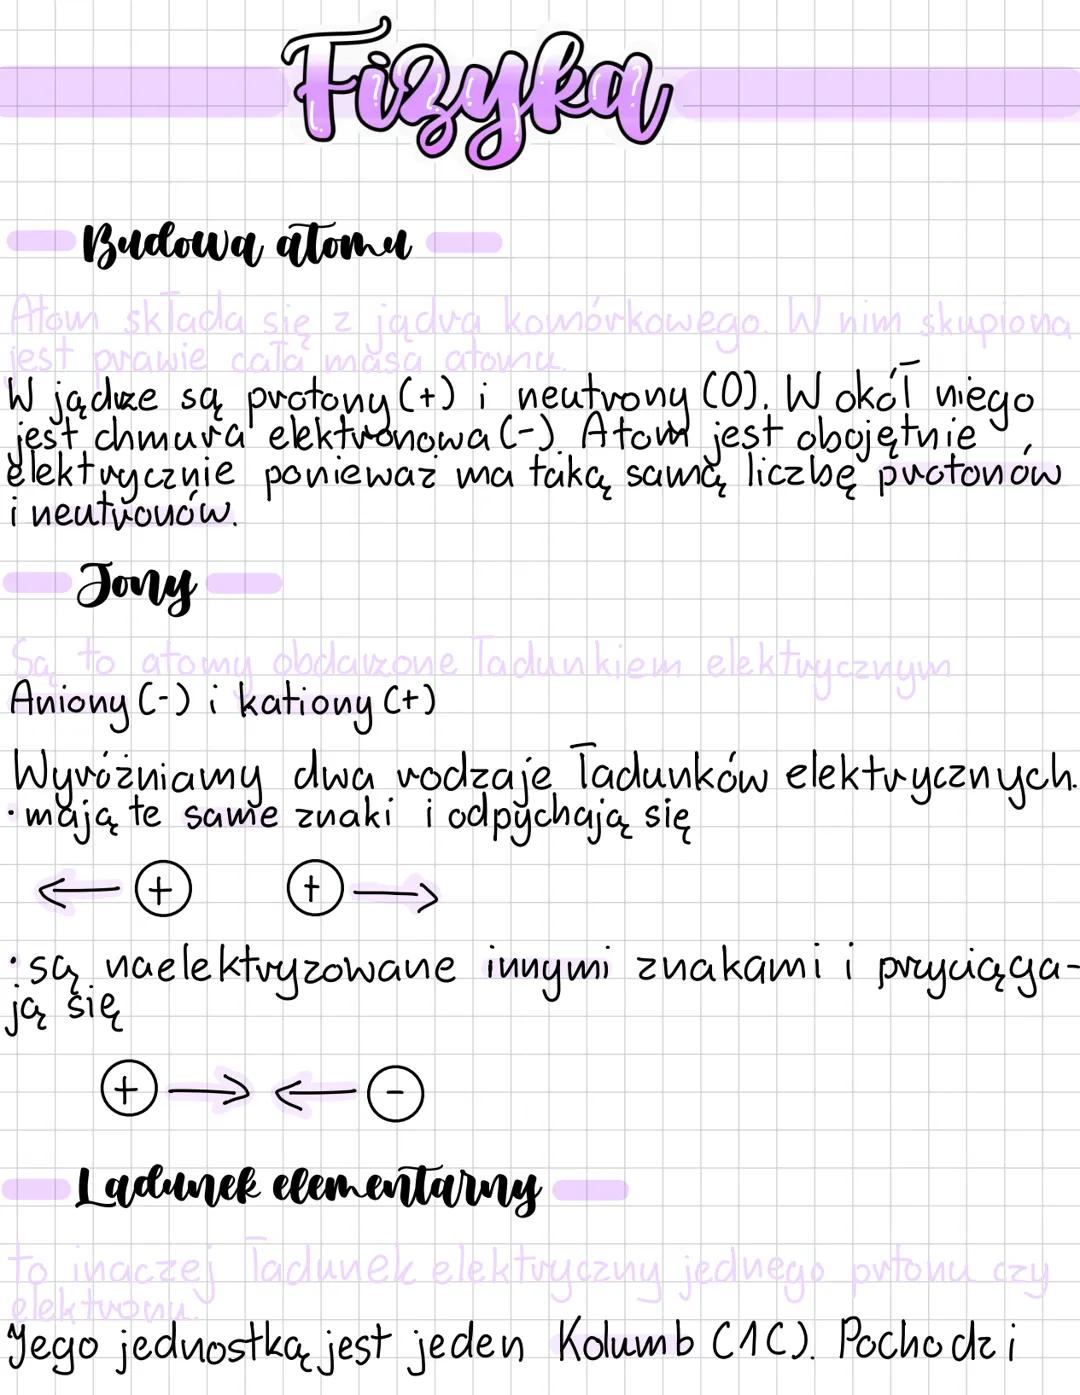 Fizyka
Budowa atomu
Atom składa się z jądra komórkowego. W nim skupiona
jest prawie cała masa atomu.
W jądrze są protony (+) i neutrony (0). W okół niego
jest chmura elektronowa (-). Atom jest obojętnie
elektrycznie ponieważ ma taką samą liczbę protonów
i neutronów.
Jony
Są to atomy obdarzone ładunkiem elektrycznym
Aniony (-) i kationy (+)
Wyróżniamy dwa rodzaje ładunków elektrycznych.
· mają te same znaki i odpychają się
+ +
· są naelektryzowane innymi znakami i przyciąga-
ją się
+ -
Ladunek elementarny
to inaczej ładunek elektryczny jednego prtonu czy
elektronu.
Jego jednostką jest jeden Kolumb (1C). Pochodzi